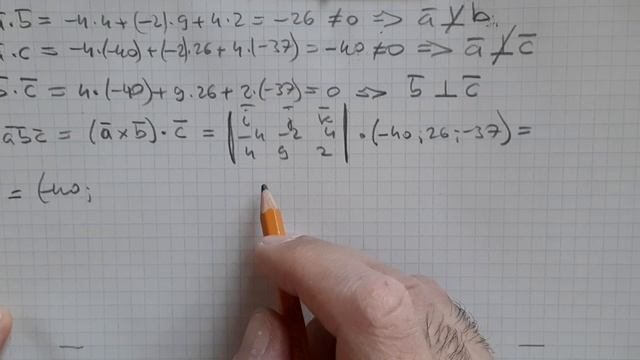 a̅·b̅ = -4·4+(-2)·9+4·2 = -26 ≠0 => a̅ ⊥̸ b̅
a̅·c̅ = -4·(-40)+(-2)·26+4·(-37) = -40 ≠0 => a̅ ⊥̸ c̅
b̅·c̅ = 4·(-40)+9·26+2·(-37) = 0 => b̅ ⊥ c̅
a̅b̅c̅ = (a̅×b̅)·c̅ = | i̅ j̅ k̅
-4 -2 4
4 9 2 | ·(-40; 26; -37) =
= (-40;